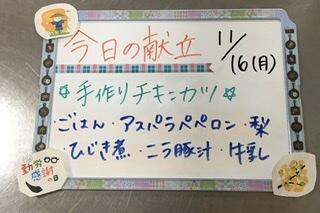 今日の献立
11/16(月)
☆手作りチキンカツ☆
・ごはん・アスパラペペロン・梨
・ひじき煮・ニラ豚汁・牛乳
勤労
感謝
の日